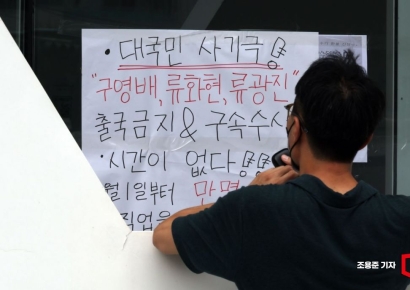 · 대국민 사기극
"구영배, 류화현, 류광진"
출국금지 & 구속수사
· 시간이 없다
월1일부터 만명
직업을
조용준 기자